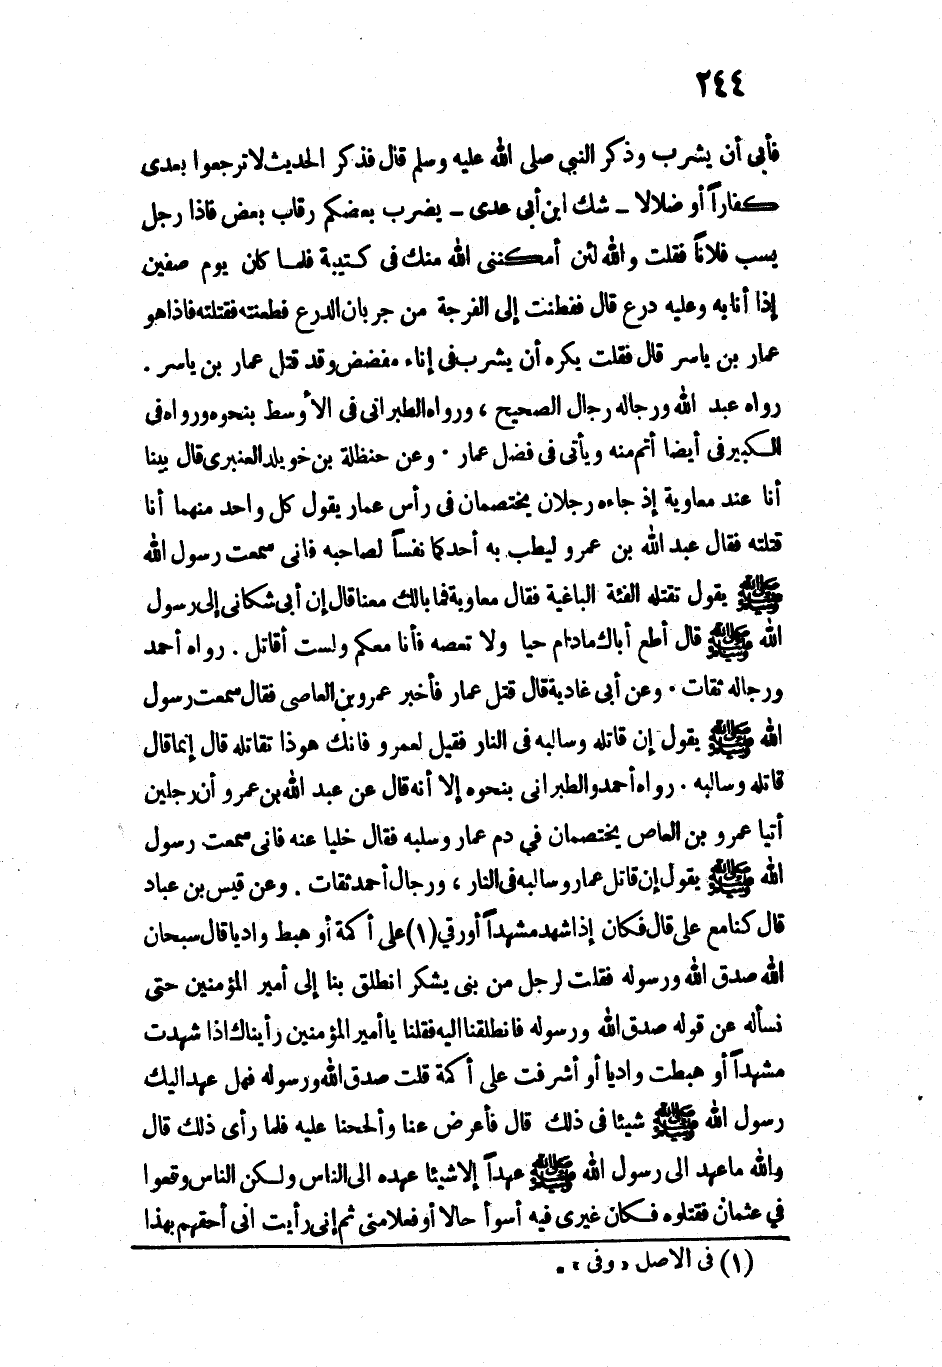 ٢٤٤
فأبى أن يشرب وذكر النبي صلى الله عليه وسلم قال فذكر الحديث لا ترجعوا بعدى
كفاراً أو ضلالا ـ شك ابن أبى عدى ـ يضرب بعضكم رقاب بعض فاذا رجل
يسب فلاناً فقلت والله لئن أمكننى الله منك فى كتيبة فلما كان يوم صفين
إذا أنا به وعليه درع قال ففطنت إلى الفرجة من جربان الدرع فطعنته فقتلته فاذا هو
عمار بن ياسر قال فقلت يكره أن يشرب فى إناء مفضض وقد قتل عمار بن ياسر .
رواه عبد الله ورجاله رجال الصحيح ، ورواه الطبرانى فى الأوسط بنحوه ورواه فى
الكبير فى أيضا أتم منه ويأتى فى فضل عمار . وعن حنظلة بن خويلد العنبرى قال بينا
أنا عند معاوية إذ جاءه رجلان يختصمان فى رأس عمار يقول كل واحد منهما أنا
قتلته فقال عبد الله بن عمرو ليطب به أحدكما نفساً لصاحبه فانى سمعت رسول الله
ﷺ يقول تقتله الفئة الباغية فقال معاوية فما بالك معنا قال إن أبى شكانى إلى رسول
الله ﷺ قال أطع أباك مادام حيا ولا تعصه فأنا معكم ولست أقاتل . رواه أحمد
ورجاله ثقات . وعن أبى غادية قال قتل عمار فأخبر عمرو بن العاصى فقال سمعت رسول
الله ﷺ يقول إن قاتله وسالبه فى النار فقيل لعمرو فانك هوذا تقاتله قال إنما قال
قاتله وسالبه . رواه أحمد والطبرانى بنحوه إلا أنه قال عن عبد الله بن عمرو أن رجلين
أتيا عمرو بن العاص يختصمان في دم عمار وسلبه فقال خليا عنه فانى سمعت رسول
الله ﷺ يقول إن قاتل عمار وسالبه فى النار ، ورجال أحمد ثقات . وعن قيس بن عباد
قال كنا مع على قال فكان إذا شهد مشهداً أو رقي (١) على أكمة أو هبط واديا قال سبحان
الله صدق الله ورسوله فقلت لرجل من بنى يشكر انطلق بنا إلى أمير المؤمنين حتى
نسأله عن قوله صدق الله ورسوله فانطلقنا اليه فقلنا يا أمير المؤمنين رأيناك اذا شهدت
مشهداً أو هبطت واديا أو أشرفت على أكمة قلت صدق الله ورسوله فهل عهد اليك
رسول الله ﷺ شيئا فى ذلك قال فأعرض عنا وألححنا عليه فلما رأى ذلك قال
والله ما عهد الى رسول الله ﷺ عهداً إلا شيئا عهده الى الناس ولكن الناس وقعوا
في عثمان فقتلوه فكان غيرى فيه أسوأ حالا أو فعلا منى ثم إنى رأيت انى أحقهم بهذا
(١) فى الاصل « وفى » .